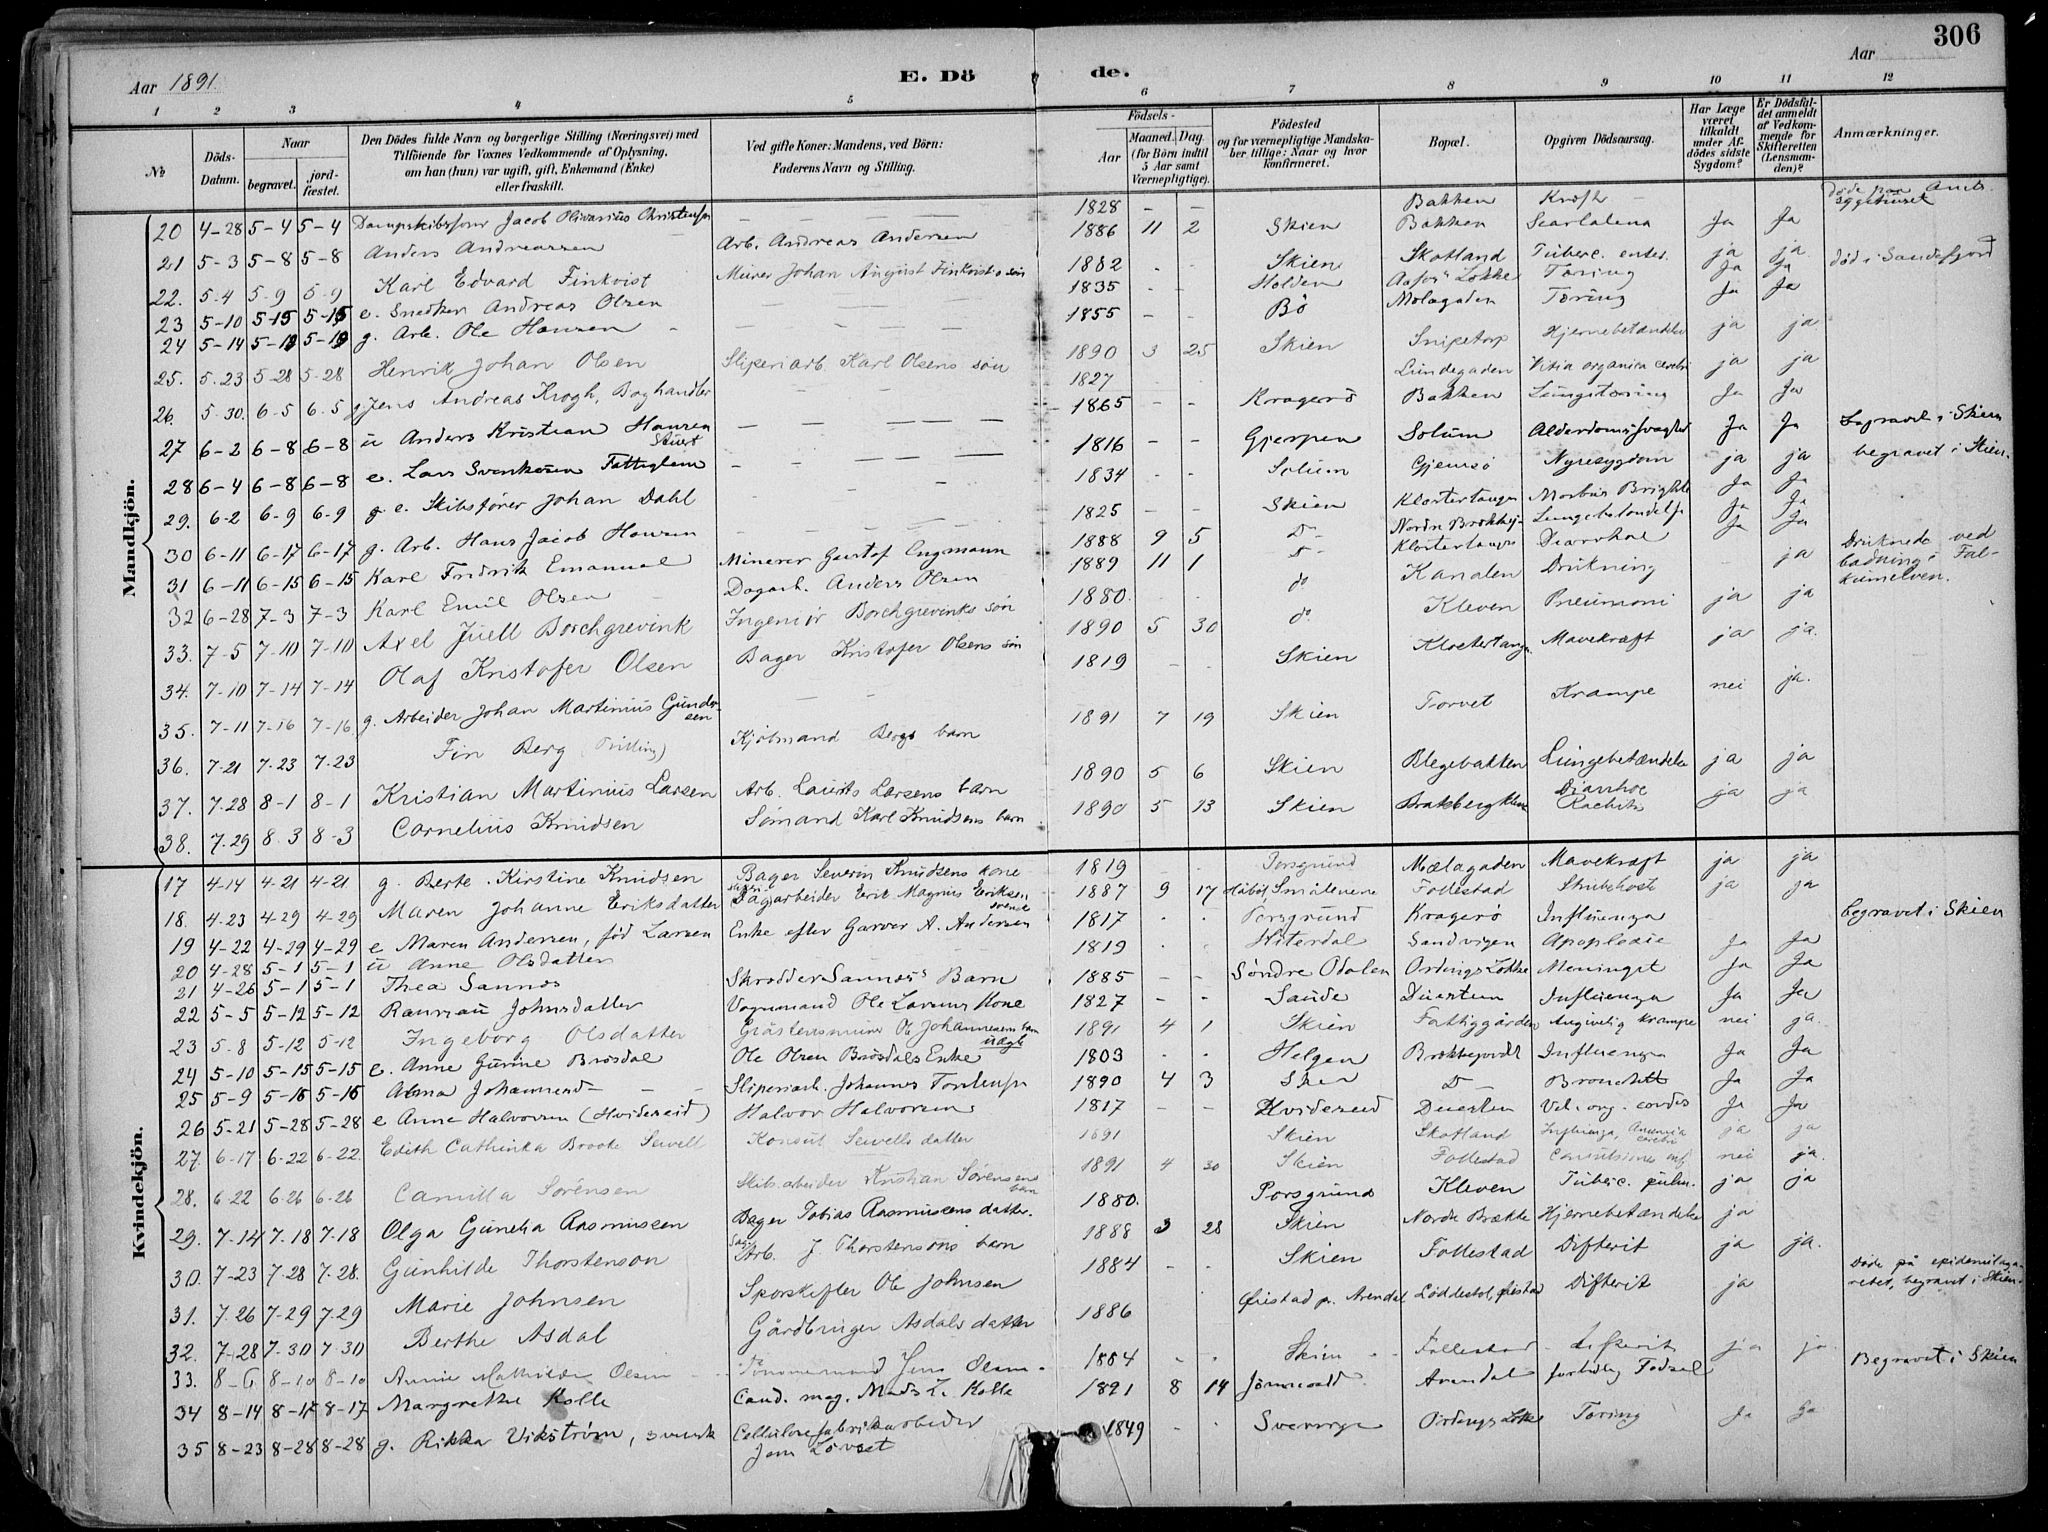 306
Aar 1891. E. Dö de. Aar
1 2 3 4 5 6 7 8 9 10 11 12
No Döds-Datum. Naar begravet. jord-fæstet. Den Dödes fulde Navn og borgerlige Stilling (Næringsvei) med Tilföiende for Voxnes Vedkommende af Oplysning, om han (hun) var ugift, gift, Enkemand (Enke) eller fraskilt. Ved gifte Koner: Mandens, ved Börn: Faderens Navn og Stilling. Födsels- Aar Maaned. Dag. (for Börn indtil 5 Aar samt Værnepligtige). Födested og for værnepligtige Mandskaber tillige: Naar og hvor konfirmeret. Bopæl. Opgiven Dödsaarsag. Har Læge været tilkaldt under Afdödes sidste Sygdom? Er Dödsfaldet anmeldt af Vedkommende for Skifteretten (Lensmanden)? Anmærkninger.
Mandkjön.
20 4-28 5-4 5-4 Dampskibsfører Jacob Olivarius Christensen — 1828 — — Bakken Kræft Døde paa Amts sygehuset
21 5-3 5-8 5-8 Anders Andreassen Arb. Andreas Andersen 1886 11 2 Skien Bakken Scarlatina Ja Ja
22. 5-4 5-9 5-9 Karl Edvard Finkvist Murer Johan August Finkvists søn 1882 Skien Skotland Tuberc. enter. ja ja. død i Sandefjord
23 5-10 5-15 5-15 e. Snedker Andreas Olsen 1835 Holden Løkke Tæring Ja Ja
24 5-14 5-19 5-19 g. Arb. Ole Hansen 1855 — — Bø Molagaden Tæring Ja Ja
25. 5-23 5-28 5-28 Henrik Johan Olsen Sliperiarb. Karl Olsens søn 1890 3 25 Skien Snipetorp Hjernebetændelse ja ja
26. 5-30. 6-5 6-5 g. Jens Andreas Krogh, Boghandler 1827 Lundegaden Vitia organica cerebri ja ja
27 6-2 6-8 6-8 u Anders Kristian Hansen — 1865 — — Kragerø Bakken Lungetæring Ja Ja
28 6-4 6-8 6-8 e. Lars Svenkesen Fattiglem — 1816 — — Gjerpen Solum Alderdomssvaghed Ja Ja begravet i Skien
29. 6-2 6-9 6-9 g e. Skibsfører Johan Dahl 1834 — — Solum Gjemsø Nyresygdom ja ja begravet i Skien.
30 6-11 6-17 6-17 g. Arb. Hans Jacob Hansen 1825 Skien Klostertangen Morbus Brightii Ja Ja
31 6-11 6-15 6-15 Karl Fredrik Emanuel Minerer Gustof Engmann 1888 9 5 D— Nordre Brække Lungebetændelse Ja Ja
32 6-28 7-3 7-3 Karl Emil Olsen Dagarb. Anders Olsen 1889 11 1 D— Klostertangen Diarrhoe Ja Ja
33. 7-5 7-10 7-10 Axel Juell Borchgrevink Ingeniør Borchgrevinks søn 1880. do Kanalen Drukning ja Druknede ved badning i Falkumelven.
34. 7-10 7-14 7-14 Olaf Kristofer Olsen Bager Kristofer Olsens søn 1890 5 30 do Kleven Pneumoni ja ja
35. 7-11 7-16 7-16 g. Arbeider Johan Martinius Gundersen 1819 Skien Klostertangen Mavekræft ja ja.
36. 7-21 7-23 7-23 Fin Berg (Tvilling) Kjøbmand Bergs barn 1891 7 19 Skien Torvet Krampe nei ja.
37. 7-28 8-1 8-1 Kristian Martinius Larsen Arb. Laurits Larsens barn 1890 5 6 Skien Blegebakken Lungebetændelse ja ja
38. 7-29 8-3 8-3 Cornelius Knudsen Sømand Karl Knudsens barn 1890 5 13 Skien Bratsbergkleven Diarrhoe Rachitis ja ja
Kvindekjön.
17 4-14 4-21 4-21 g. Berte Kirstine Knudsen Bager Severin Knudsens kone 1819 Porsgrund Mælagaden Mavekræft ja ja
18. 4-23 4-29 4-29 Maren Johanne Eriksdatter Dagarbeider Erik Magnus Eriksen svensk 1887 9 17 Håbøl, Smålenene Follestad Strubehoste ja ja
19 4-22 4-29 4-29 e Maren Andersen, fød Larsen Enke efter Garver A. Andersen 1817 Porsgrund Kragerø Influenza begravet i Skien
20 4-28 5-1 5-1 u Anne Olsdatter 1819 Hiterdal Sandvigen Apoplexie Ja Ja
21 4-26 5-1 5-1 Thea Sannos Skrædder Sannos' Barn 1885 — — Søndre Odalen Ordings Løkke Meningit Ja Ja
22 5-5 5-12 5-12 Johnsdatter Vognmand Ole Larsens Kone 1827 — — Saude Duestien Influenza Ja Ja
23 5-8 5-12 5-12 Ingeborg Olsdatter Gråstensminer O. Johannesens barn uægte 1891 4 1 Skien Fattiggården Angivelig Krampe nei ja.
24 5-10 5-15 5-15 e. Anne Gurine Brøsdal Ole Olsen Brøsdals Enke 1803 Helgen Influenza Ja Ja
25 5-9 5-16 5-16 Alma Johannesd— Sliperiarb. Johannes Torstensen 1890 4 3 Skien D— Bronchitis Ja Ja
26 5-21 5-28 5-28 e Anne Halvorsen (Hvideseid) Halvor Halvorsen 1817 — — Hvideseid Duestien Vit. org. cordis Ja Ja
27. 6-17 6-22 6-22. Edith Cathinka Brooke Sewell Konsul Sewells datter 1891 Skien Skotland Influenza, Anæmia cerebri ja ja
28. 6-22 6-26 6-26 Camilla Sørensen Skibsarbeider Kristian Sørensens barn 1891 4 30 Skien Follestad Convulsiones inf. nei ja.
29. 7-14 7-18 7-18 Olga Gunelia Rasmussen Bager Tobias Rasmussens datter. 1880. Porsgrund Kleven Tuberc. pulm. ja ja
30. 7-23 7-28 7-28. Gunhilde Thorstenson Arb. J. Thorstensons barn 1888 3 28 Skien Nordre Brække Hjernebetændelse ja
31. 7-26 7-29 7-29 Marie Johnsen Sporskifter Ole Johnsen 1884 — Skien Follestad Difterit ja ja.
32. 7-28 7-30 7-30 Berthe Asdal Gårdbruger Asdals datter 1886 Øiestad pr. Arendal Løddestøl, Øiestad Difterit ja Døde på epidemilazarettet, begravet i Skien.
33. 8-6 8-10 8-10 Annie Mathilde Olsen Tømmermand Jens Olsen 1884 Skien Follestad Difterit ja ja
34 8-14 8-17 8-17 Margrethe Kolle Cand. mag. Mads L. Kolle 1891 8 14 Arendal fortidlig Fødsel Begravet i Skien
35 8-23 8-28 8-28 g. Rikka Vikstrøm, svensk Cellulosefabrikarbeider 1849 Sverige Ordings Løkke Tæring Ja Ja